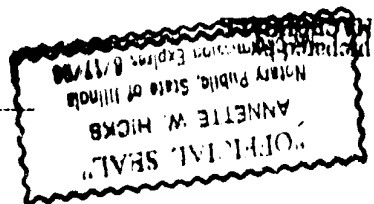 "OFFICIAL SEAL"
ANNETTE W. HICKS
Notary Public, State of Illinois
Commission Expires